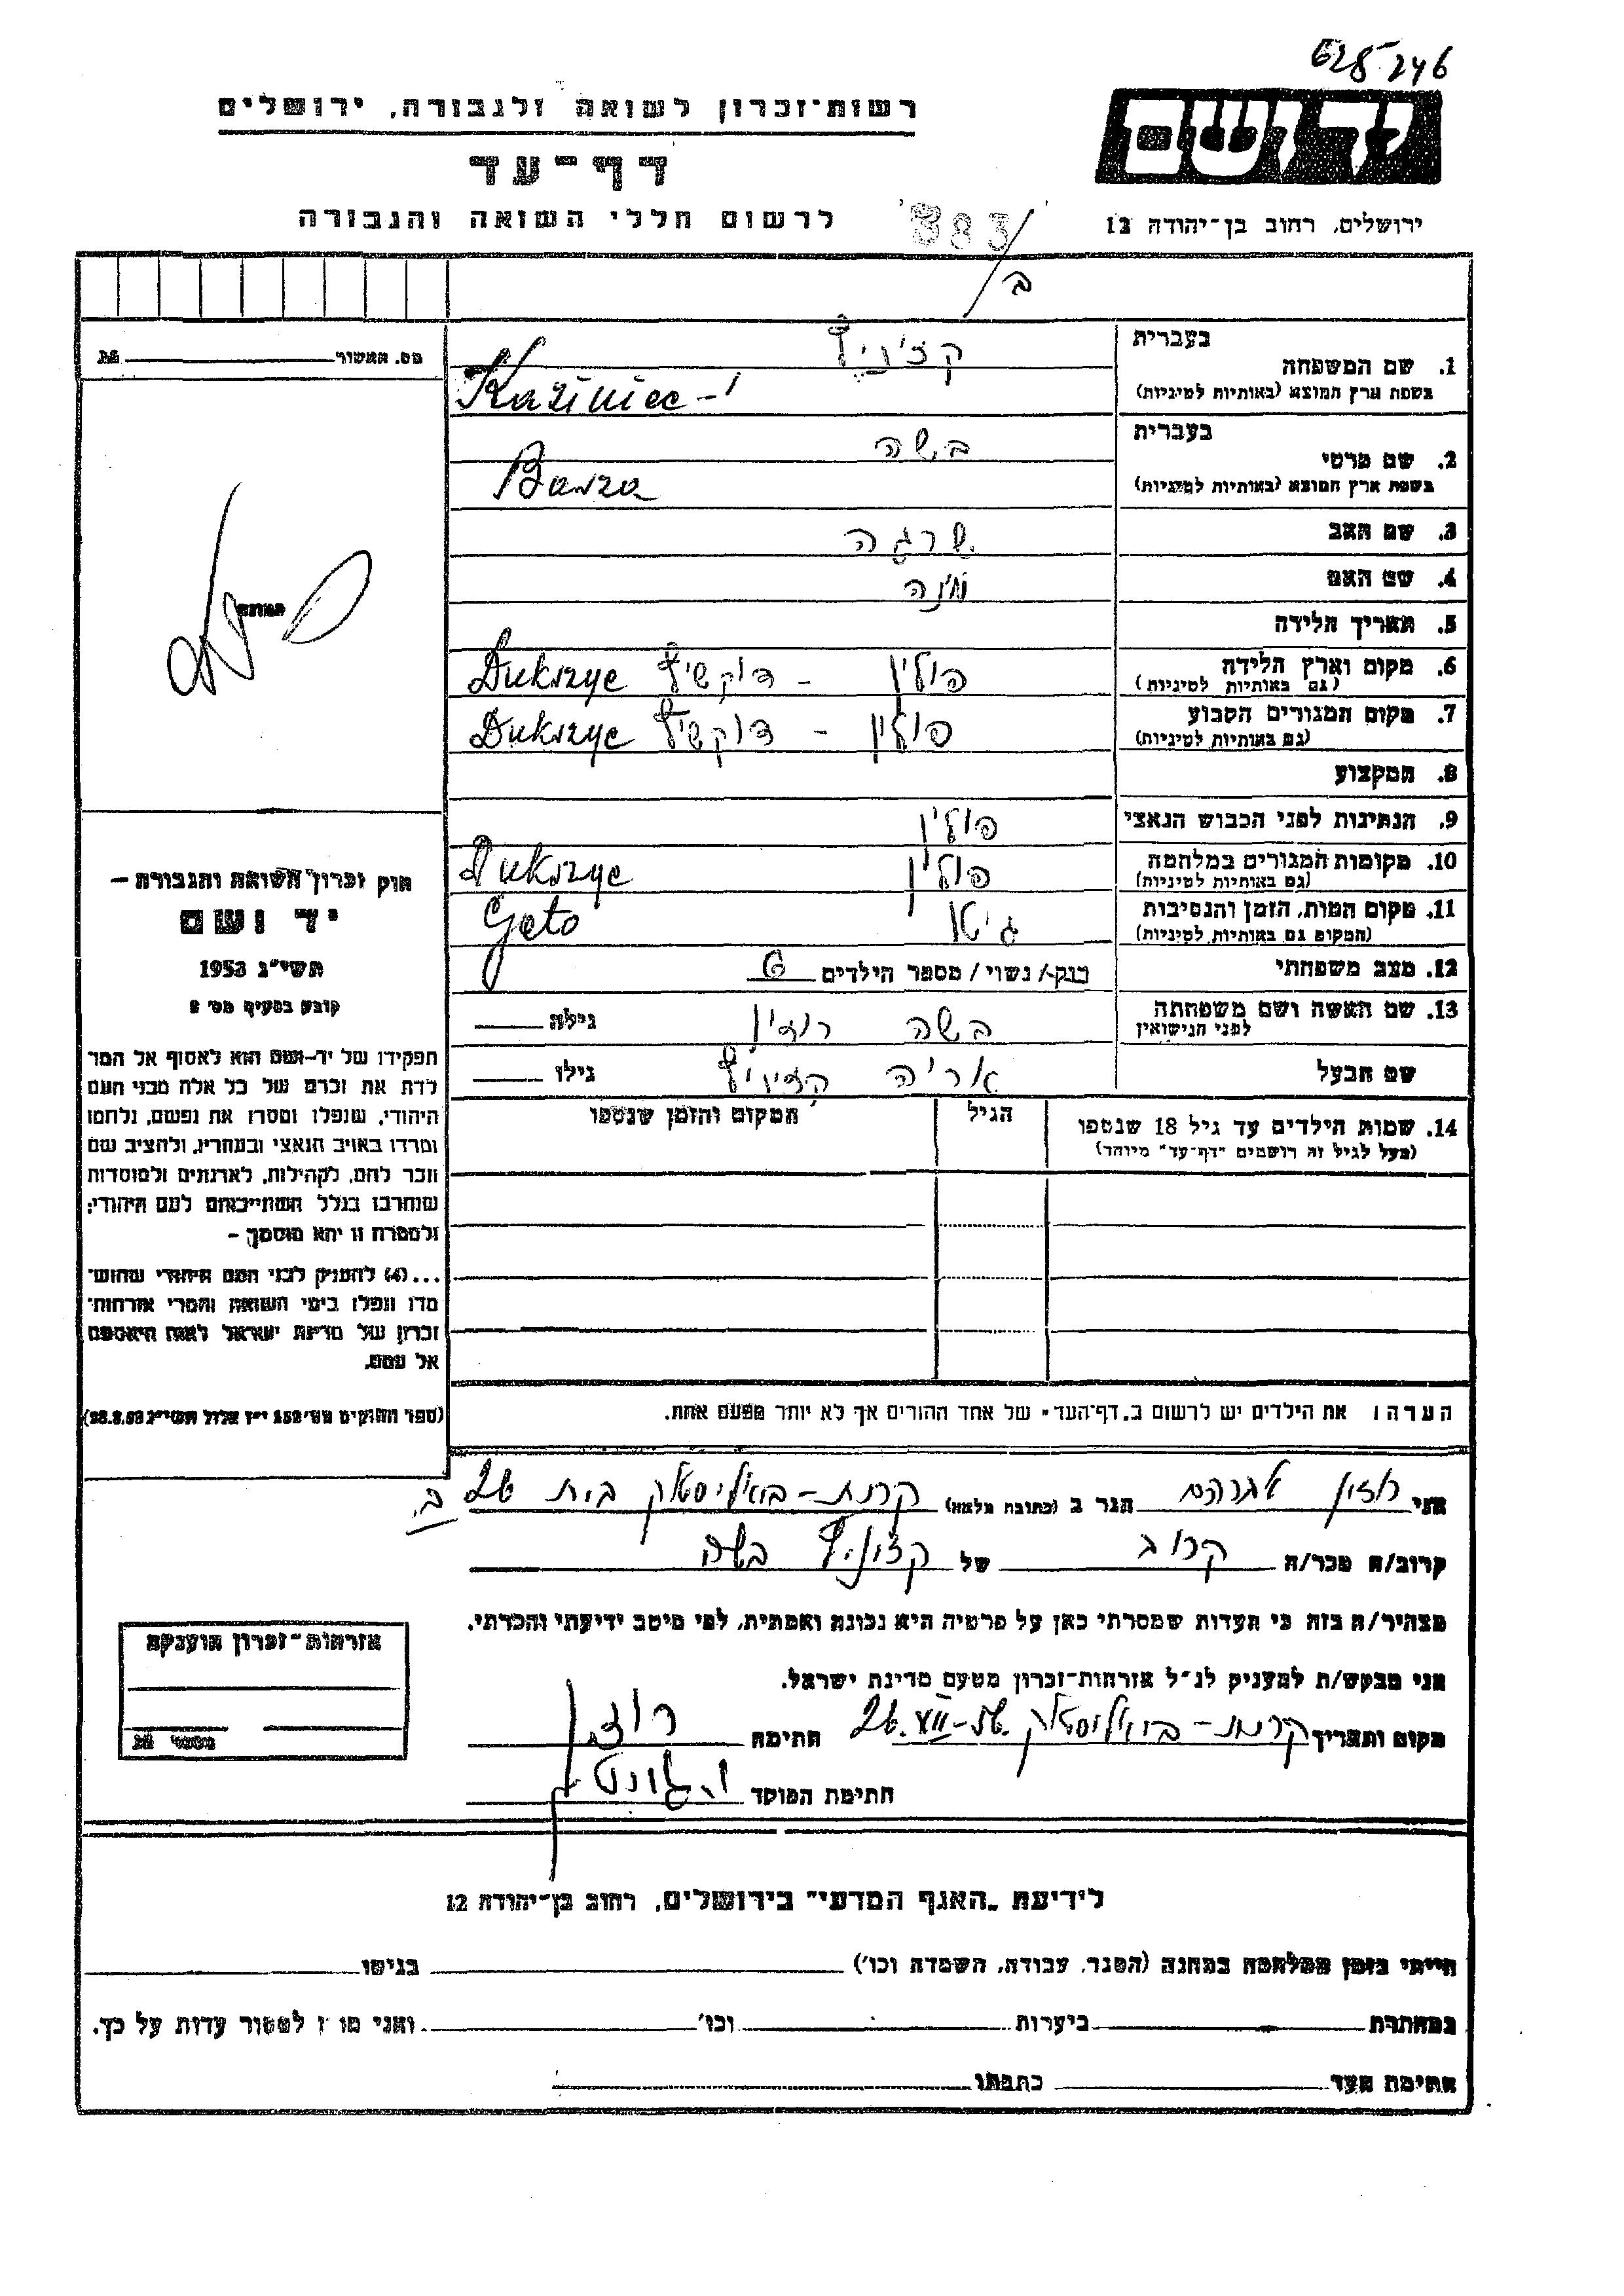 628-246
רשות־זכרון לשואה ולגבורה, ירושלים
יד ושם
דף־עד
לרשום חללי השואה והגבורה
383/ב
ירושלים, רחוב בן־יהודה 12
מס. האשור
בעברית
1. שם המשפחה
בשפת ארץ המוצא (באותיות לטיניות)
Kaziniec
בעברית בשה
2. שם פרטי
בשפת ארץ המוצא (באותיות לטיניות)
Basza
3. שם האב שרגה
4. שם האם
5. תאריך הלידה
6. מקום וארץ הלידה פולין - דוקשיץ Dukszyc
(גם באותיות לטיניות)
7. מקום המגורים הקבוע פולין - דוקשיץ Dukszyc
(גם באותיות לטיניות)
8. המקצוע
9. הנתינות לפני הכבוש הנאצי פולין
10. מקומות המגורים במלחמה פולין Dukszyc
(גם באותיות לטיניות)
11. מקום המות, הזמן והנסיבות גיטו Geto
(המקום גם באותיות לטיניות)
12. מצב משפחתי רוק/ נשוי/ מספר הילדים 6
13. שם האשה ושם משפחתה בשה רוזין גילה
לפני הנישואין
שם הבעל אריה גילו
14. שמות הילדים עד גיל 18 שנספו הגיל המקום והזמן שנספו
(מעל לגיל זה רושמים "דף־עד" מיוחד)
הערה: את הילדים יש לרשום ב"דף־העד" של אחד ההורים אך לא יותר מפעם אחת.
התמונה
חוק זכרון השואה והגבורה —
יד ושם
תשי"ג 1953
קובע בסעיף מס' 2
תפקידו של יד־ושם הוא לאסוף אל המו־
לדת את זכרם של כל אלה מבני העם
היהודי, שנפלו ומסרו את נפשם, נלחמו
ומרדו באויב הנאצי ובעוזריו, ולהציב שם
וזכר להם, לקהילות, לארגונים ולמוסדות
שנחרבו בגלל השתייכותם לעם היהודי;
ולמטרה זו יהא מוסמך —
...(4) להעניק לבני העם היהודי שהוש־
מדו ונפלו בימי השואה והמרי אזרחות־
זכרון של מדינת ישראל לאות היאספם
אל עמם.
(ספר החוקים מס' 132 י"ז אלול תשי"ג 28.8.53)
אני רוזין אברהם הגר ב (כתובת מלאה) קרית-ביאליסטוק בית 26 ב.
קרוב/ה מכר/ה קרוב של בשה
מצהיר/ה בזה כי העדות שמסרתי כאן על פרטיה היא נכונה ואמתית, לפי מיטב ידיעתי והכרתי.
אני מבקש/ת להעניק לנ"ל אזרחות־זכרון מטעם מדינת ישראל.
מקום ותאריך קרית-ביאליסטוק 26.VII-56. חתימה רוזין
חתימת הפוקד
אזרחות־זכרון הוענקה
מספר
לידיעת "האגף המדעי" בירושלים, רחוב בן־יהודה 12
הייתי בזמן המלחמה במחנה (הסגר, עבודה, השמדה וכו') בגיטו
במחתרת ביערות וכו' ואני מוכן למסור עדות על כך.
חתימת העד כתבתו